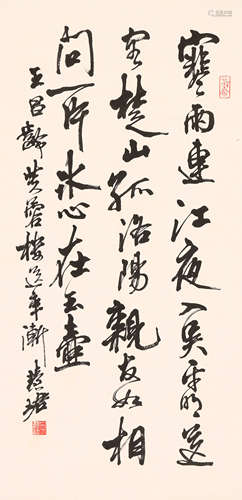 寒雨連江夜入吳平明送
客楚山孤洛陽親友如相
問一片冰心在玉壺
王昌齡芙蓉樓送辛漸 慧珺